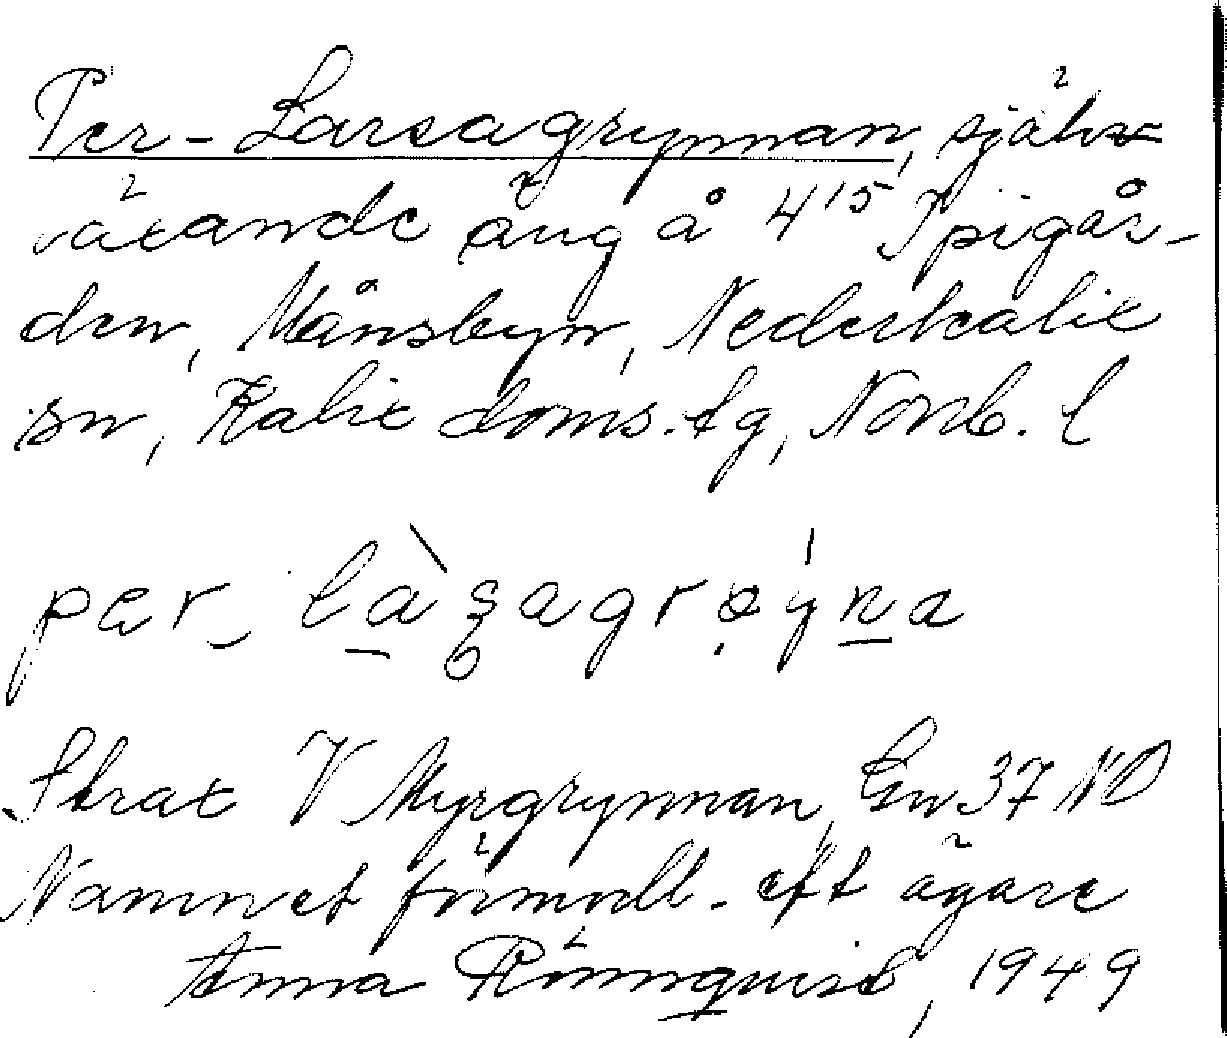 Per-Larsagrynnan, själv-
växande äng å 4¹⁵ Spigår-
den, Månsbyn, Nederkalix
sn, Kalix doms. tg, Norrb. l
Strax V Myrgrynnan, Gw 37 NO
Namnet förmodl. eft ägare
Anna Rönnquist, 1949